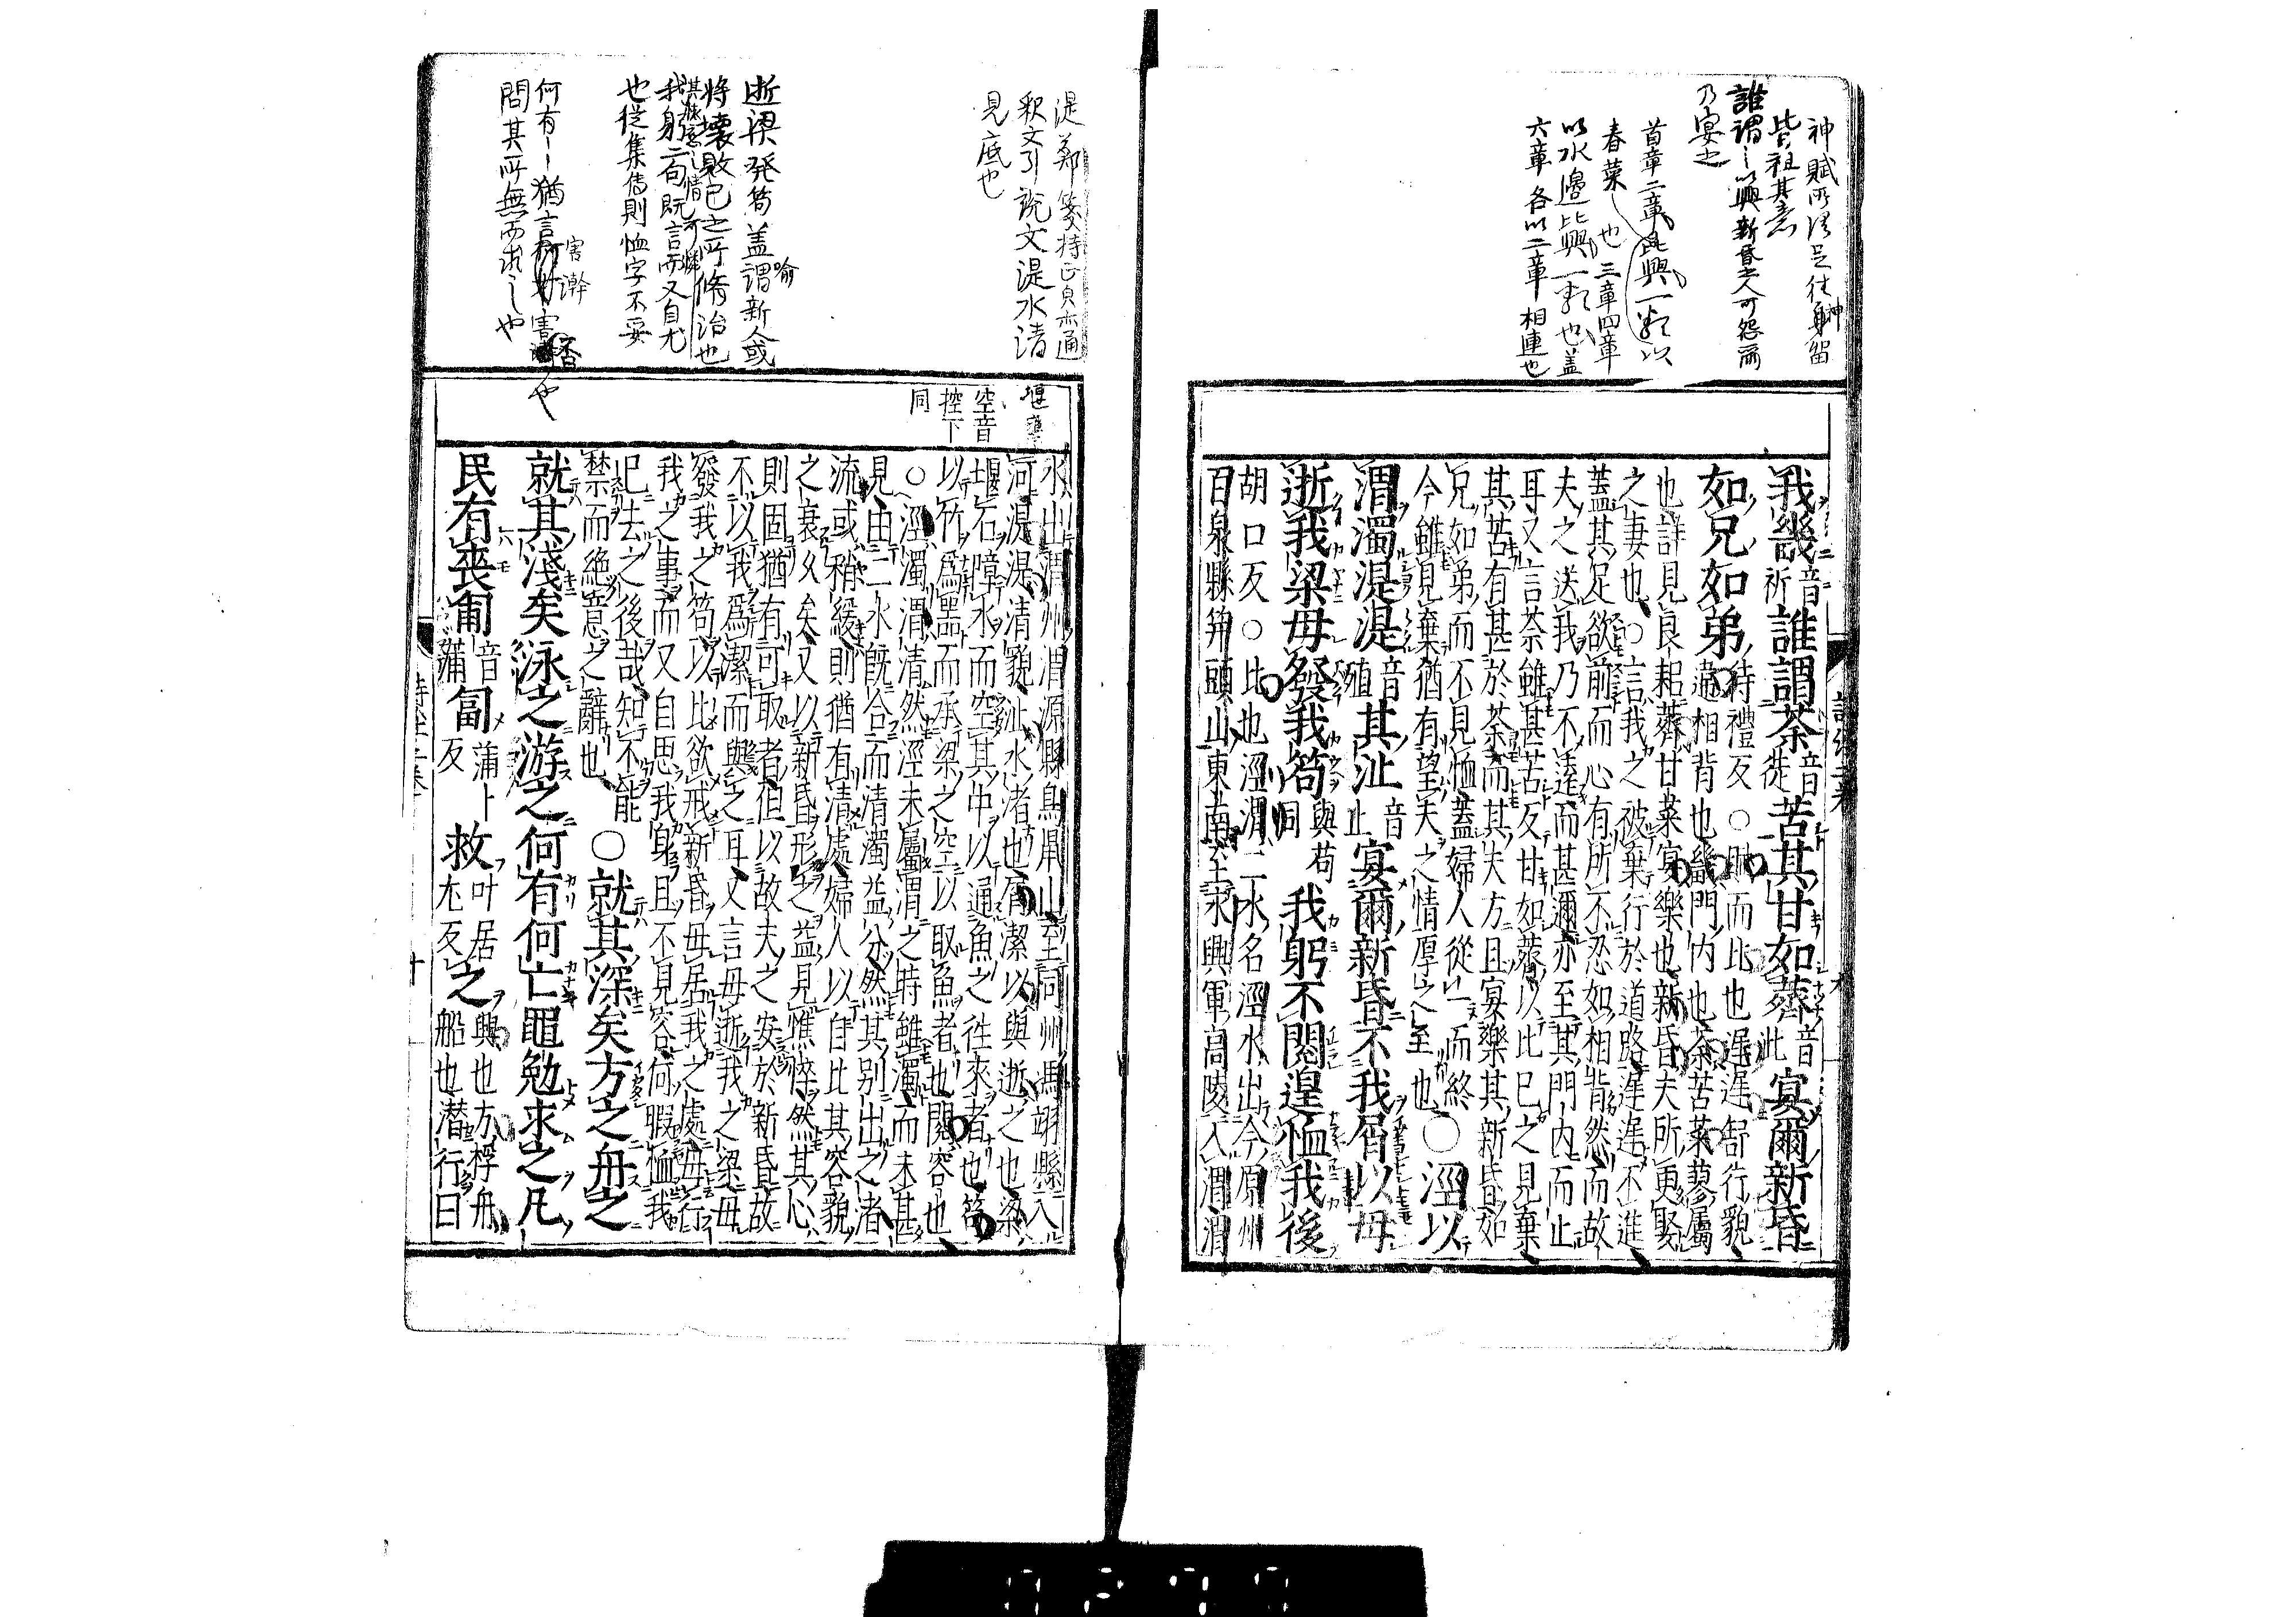 神賦所謂足往神留
皆祖其意
誰謂〻以興新昏之人可怨而
乃宴之
首章二章皆興一類以
春菜〻也三章四章
以水邊比興一類也蓋
六章各以二章相連也
我畿音祈誰謂荼音徒苦其甘如薺音此宴爾新昏
如兄如弟待禮反○賦而比也遲遲舒行貌
違相背也畿門内也荼苦菜蓼屬
也詳見良耜薺甘菜宴樂也新昏夫所更娶
之妻也○言我之被棄行於道路遲遲不進
蓋其足欲前而心有所不忍如相背然而故
夫之送我乃不遠而甚邇亦至其門内而止
耳又言荼雖甚苦反甘如薺以比已之見棄
其苦有甚於荼而其夫方且宴樂其新昏如
兄如弟而不見恤蓋婦人從一而終
今雖見棄猶有望夫之情厚之至也○涇以
渭濁湜湜音殖其沚音止宴爾新昏不我屑以毋
逝我梁毋發我笱與苟同我躬不閲遑恤我後
胡口反○比也涇渭二水名涇水出今原州
百泉縣筓頭山東南至永興軍高陵入渭渭
湜鄭箋持正貞亦通
釈文引説文湜水清
見底也
逝梁発笱蓋喻謂新人或
将壊敗已之所脩治也
我身二句既言而又自尤
也従集傳則恤字不妥
何有〻猶言
問其所無而求之也
空音
控下
同
水出渭州渭源縣鳥鼠山至同州馮翊縣入
河湜湜清貌沚水渚也屑潔以與逝之也梁
堰石嶂水而空其中以通魚之往來者也笱
以竹爲噐而承梁之空以取魚者也閲容也
○涇濁渭清然涇未屬渭之時雖濁而未甚
見由二水既合而清濁益分然其別出之渚
流或稍緩則猶有清處婦人以自比其容貌
之衰久矣又以新昏形之益見憔悴然其心
則固猶有可取者但以故夫之安於新昏故
不以我爲潔而與之耳又言毋逝我之梁毋
發我之笱以比欲戒新昏毋居我之處毋行
我之事而又自思我身且不見容何暇恤我
巳去之後哉知不能
禁而絶意之辭也○就其深矣方之舟之
就其淺矣泳之游之何有何亡黽勉求之凡
民有喪匍音蒲匐蒲卜反救叶居尤反之興也方桴舟
船也潜行曰